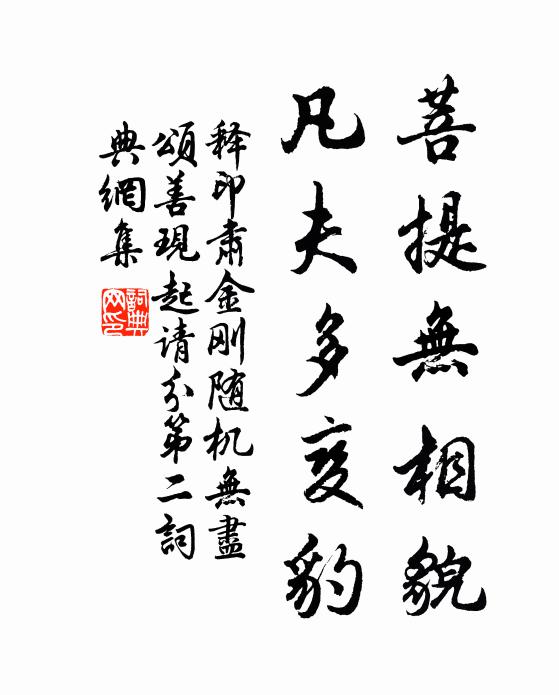 菩提無相貌
凡夫多变豹
释印肅金刚随机無盡
頌善現起请分第二詞
典網集
詞典
网印